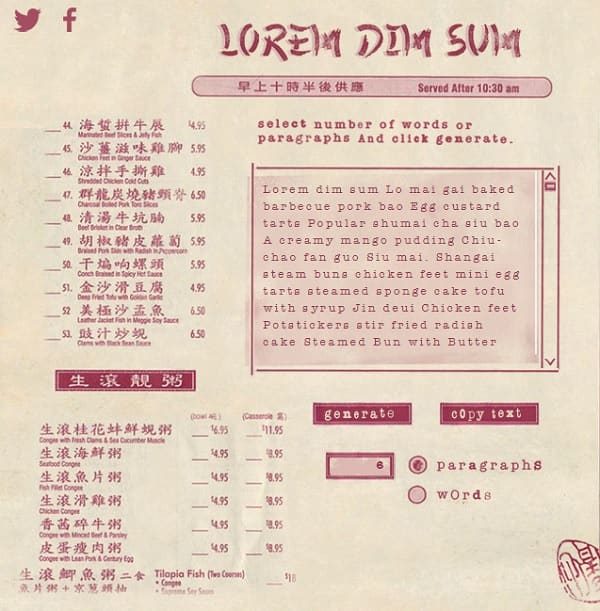 LOREM DIM SUM
早上十時半後供應 Served After 10:30 am
44. 海蜇拼牛展 $4.95
Marinated Beef Slices & Jelly Fish
45. 沙薑滋味雞腳 5.95
Chicken Feet in Ginger Sauce
46. 涼拌手撕雞 4.95
Shredded Chicken Cold Cuts
47. 群龍炭燒豬頸脊 6.50
Charcoal Boiled Pork Toro Slices
48. 清湯牛坑腩 5.95
Beef Brisket in Clear Broth
49. 胡椒豬皮蘿蔔 5.95
Braised Pork Skin with Radish In Peppercorn
50. 干煸响螺頭 5.95
Conch Braised in Spicy Hot Sauce
51. 金沙滑豆腐 4.95
Deep Fried Tofu with Golden Garlic
52. 美極沙孟魚 6.50
Leather Jacket Fish in Meggie Soy Sauce
53. 豉汁炒蜆 6.50
Clams with Black Bean Sauce
生滾靚粥
(bowl 碗) (Casserole 窩)
生滾桂花蚌鮮蜆粥 $6.95 $11.95
Congee with Fresh Clams & Sea Cucumber Muscle
生滾海鮮粥 $4.95 $8.95
Seafood Congee
生滾魚片粥 $4.95 $8.95
Fish Fillet Congee
生滾滑雞粥 $4.95 $8.95
Chicken Congee
香茜碎牛粥 $4.95 $8.95
Congee with Minced Beef & Parsley
皮蛋瘦肉粥 $4.95 $8.95
Congee with Lean Pork & Century Egg
生滾鯽魚粥二食 Tilapia Fish (Two Courses) $18
• Congee
魚片粥+京蔥頭抽 • Supreme Soy Sauce
select number of words or
paragraphs And click generate.
Lorem dim sum Lo mai gai baked
barbecue pork bao Egg custard
tarts Popular shumai cha siu bao
A creamy mango pudding Chiu-
chao fan guo Siu mai. Shangai
steam buns chicken feet mini egg
tarts steamed sponge cake tofu
with syrup Jin deui Chicken feet
Potstickers stir fried radish
cake Steamed Bun with Butter
generate copy text
6 paragraphs
words